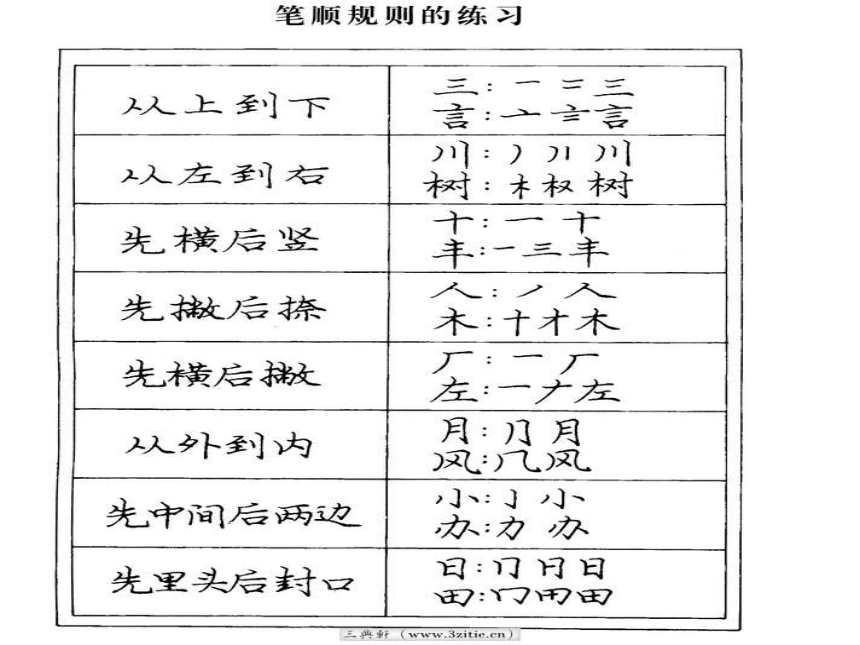 笔顺规则的练习
从上到下
三：一 二 三
言：亠 亖 言
从左到右
川：丿 丿丨 川
树：木 权 树
先横后竖
十：一 十
丰：一 三 丰
先撇后捺
人：丿 人
木：十 才 木
先横后撇
厂：一 厂
左：一 𠂇 左
从外到内
月：⺆ 月
风：几 风
先中间后两边
小：亅 小
办：力 办
先里头后封口
日：冂 日
田：冂 田
三典轩（www.3zitie.cn）